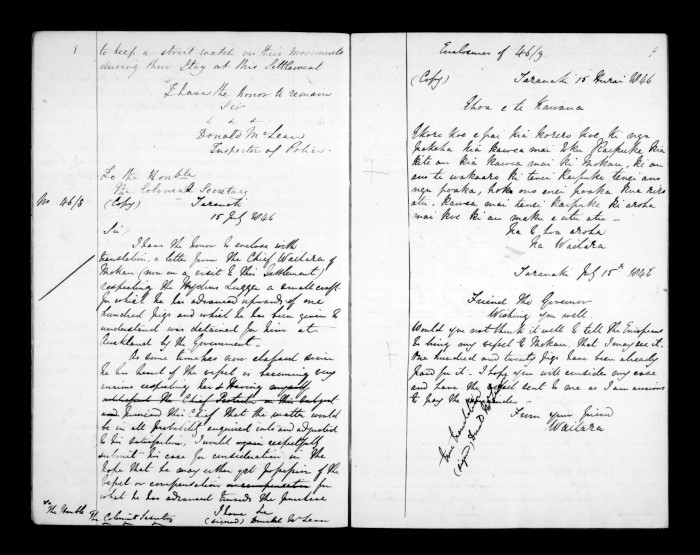 8
to keep a strict watch on their movements
during their stay at this Settlement
I have the honor to remain
Sir
&c &c &c
Donald McLean
Inspector of Police
To the Honble
The Colonial Secretary
No 46/8
(Copy) Taranaki
15 July 1846
Sir,
I have the honor to enclose with
translation, a letter from the Chief Waitara of
Mokau (now on a visit to this Settlement)
respecting the Lugger a small craft
for which he has advanced upwards of one
hundred pigs and which he has been given to
understand was detained for him at
Auckland by the Government.
As some time has now elapsed since
he has heard of the vessel is becoming very
anxious respecting her & Having myself
addressed the Chief Protector on this subject
and promised this Chief that the matter would
be in all probability enquired into and adjusted
to his satisfaction, I would again respectfully
submit his case for consideration in the
hope that he may either get possession of the
vessel or compensation or compensation for
what he has advanced towards the purchase
I have &c
(signed) Donald McLean
The Honble The Colonial Secretary
9
Enclosures of 46/9
(Copy) Taranaki 15 Hurai 1846
E hoa e te Kawana
Ekore koe e pai kia korero koe ki nga
pakeha kia kawea mai taku Kaipuke kia
kite au kia kawea mai ki Mokau, ki au
ano te wakaaro ki tenei Kaipuke tenei ano
nga poaka, hoko ona enei poaka kua riro
atu. kawea mai tenei kaipuke ki aroha
mai koe ki au maku e utu atu –
Na to hoa aroha
Na Waitara
Taranaki July 15th 1846
Friend The Governor
Wishing you well.
Would you not think it well to tell the Europeans
to bring my vessel to Mokau, that I may see it.
One hundred and twenty pigs have been already
paid for it – I hope you will consider my case
and have the vessel sent to me as I am anxious
to pay the –
From your friend
Waitara
True translation
(signed) Donald McLean